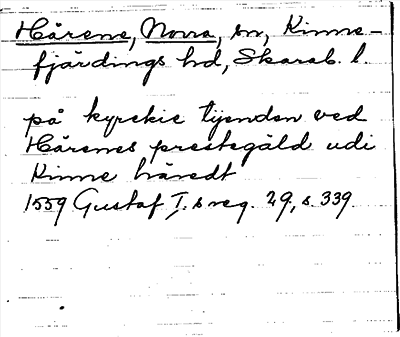 Härene, Norra, sn, Kinne-
fjärdings hd, Skarab. l.
på kyrckie tijenden ved
Härenes prestegäld udi
Kinne häredt
1559 Gustaf I:s reg. 29, s. 339.